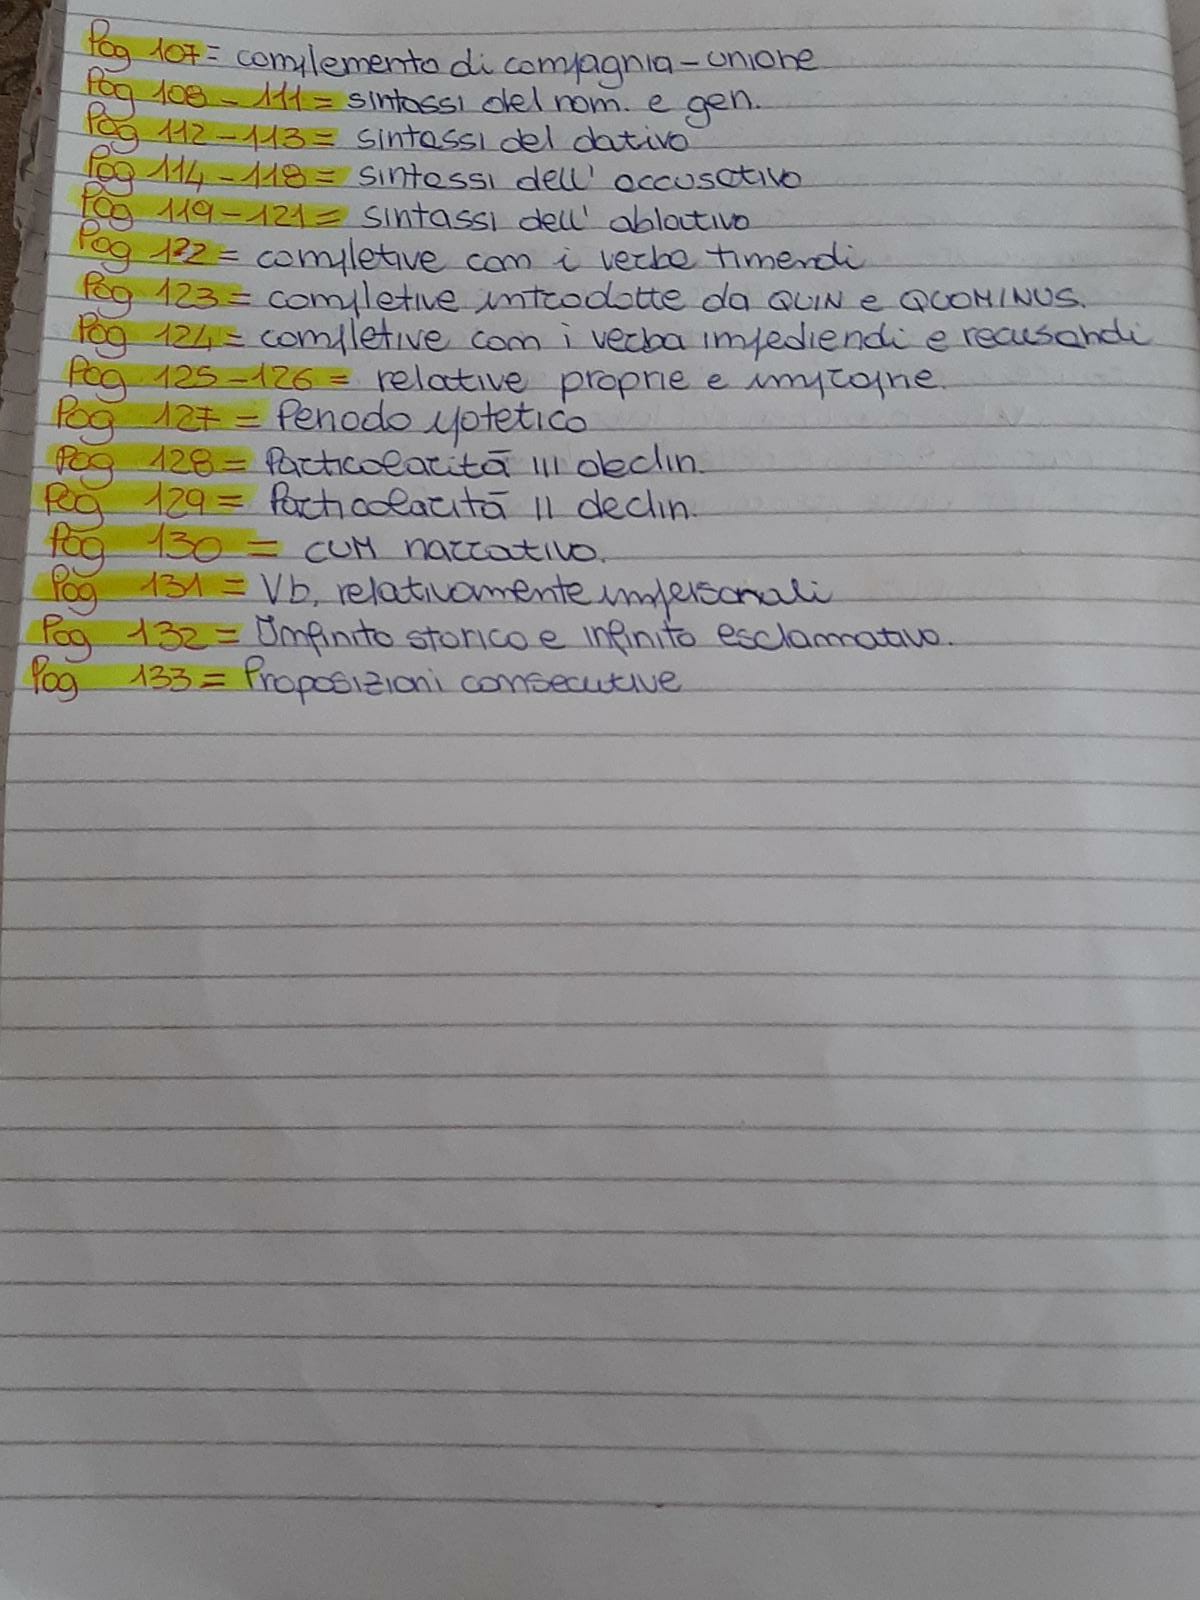 Pag 107 = complemento di compagnia - unione
Pag 108 - 111 = sintassi del nom. e gen.
Pag 112 - 113 = sintassi del dativo
Pag 114 - 118 = sintassi dell' accusativo
Pag 119 - 121 = sintassi dell' ablativo
Pag 122 = completive con i verba timendi
Pag 123 = completive introdotte da QUIN e QUOMINUS.
Pag 124 = completive con i verba impediendi e recusandi
Pag 125 - 126 = relative proprie e improprie.
Pag 127 = Periodo ipotetico
Pag 128 = Particolarità III declin.
Pag 129 = Particolarità II declin.
Pag 130 = CUM narrativo.
Pag 131 = Vb. relativamente impersonali
Pag 132 = Infinito storico e infinito esclamativo.
Pag 133 = Proposizioni consecutive